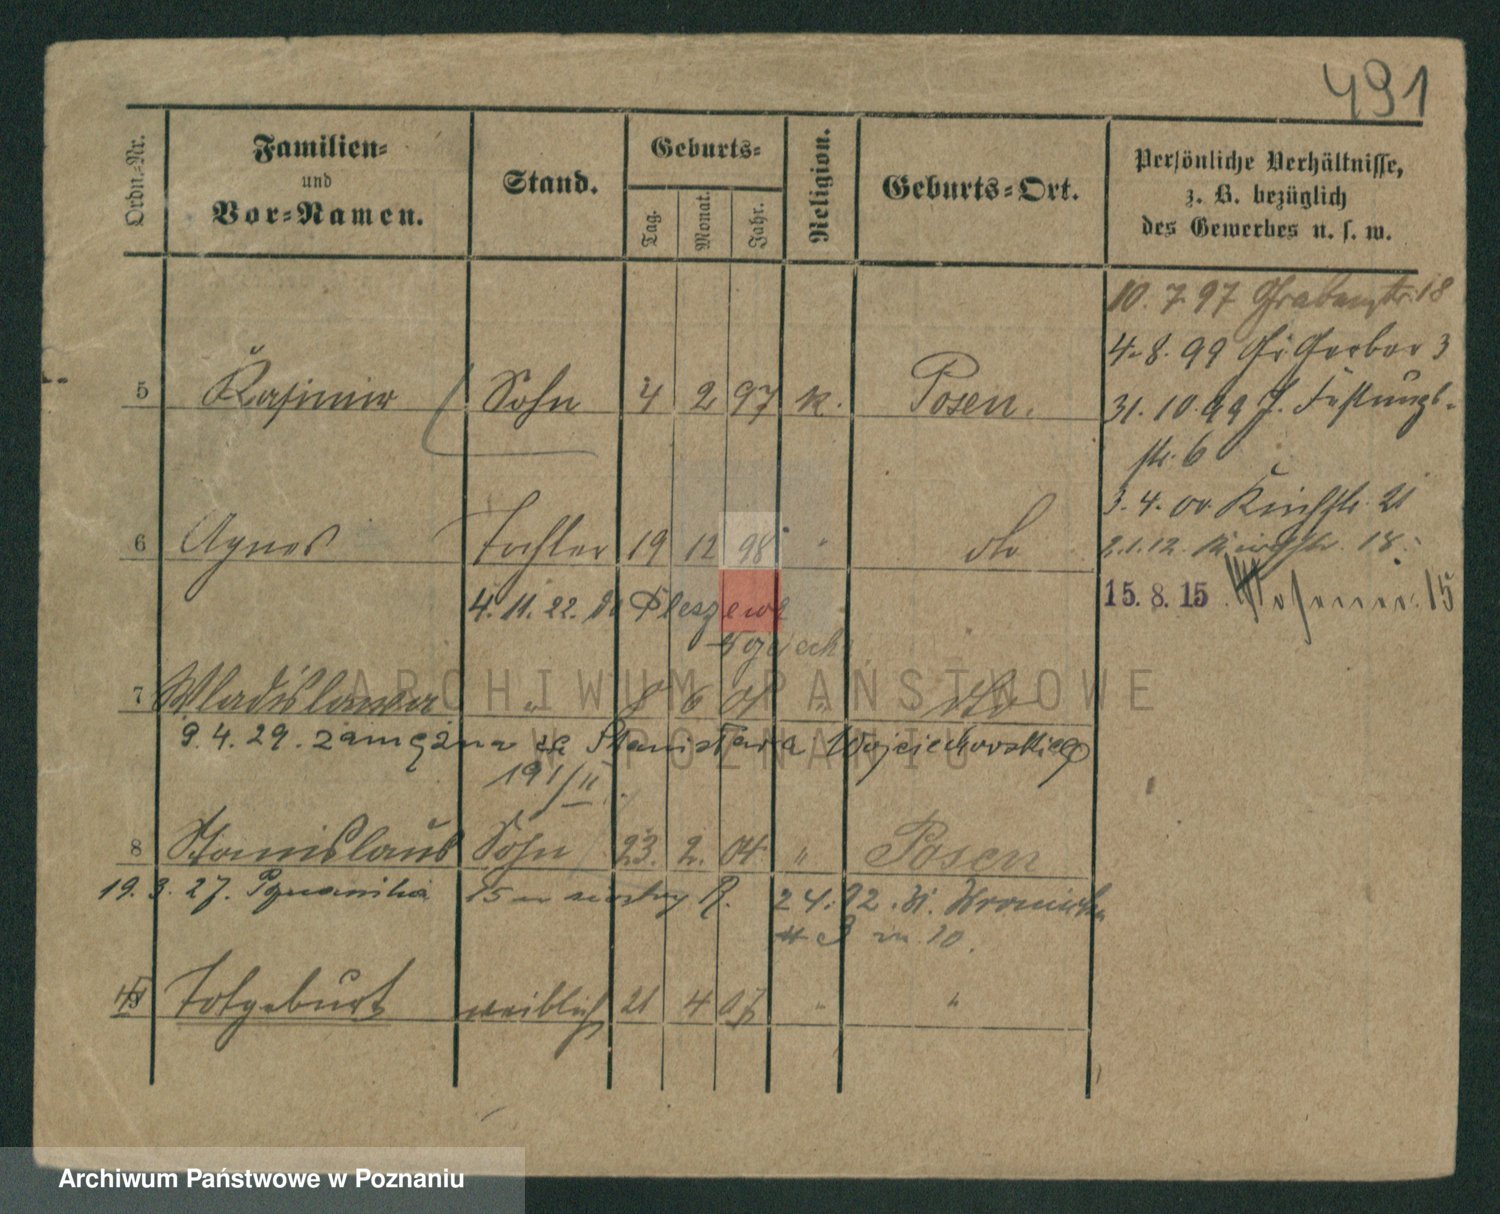 491
Ordn.-Nr.
Familien-
und
Vor-Namen.
Stand.
Geburts-
Tag.
Monat.
Jahr.
Religion.
Geburts-Ort.
Persönliche Verhältnisse,
z. B. bezüglich
des Gewerbes u. s. w.
10. 7. 97 Grabenstr. 18
4. 8. 99 Gr. Gerber 3
5 Kasimir Sohn 4 2 97 k. Posen.
31. 10. 99 Festungs-
str. 6
3. 4. 00 Kirchstr. 21
6 Agnes Tochter 19 12 98 " do
2. 1. 12. 18.
4. 11. 22. Pleszewa
15. 8. 15 15
7 Wladislawa " 8 6 " dto
9. 4. 29. zamężna za Stanisława Wojciechowskiego
191/II
8 Stanislaus Sohn 23. 2. 04 " Posen
19. 3. 27. Poznańska 15 R. 24. 12. Wroniecka
m 10.
9 Totgeburt weiblich 21 4 07 " "
ARCHIWUM PAŃSTWOWE
W POZNANIU
Archiwum Państwowe w Poznaniu